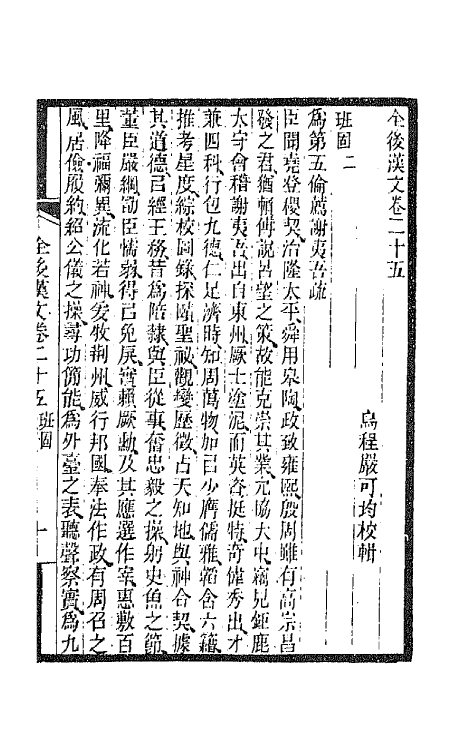 全後漢文卷二十五
烏程嚴可均校輯
班固二
爲第五倫薦謝夷吾疏
臣聞堯登稷契治隆太平舜用皋陶政致雍熙殷周雖有高宗昌
發之君猶賴傅說呂望之策故能克崇其業允協大中竊見鉅鹿
太守會稽謝夷吾出自東州厥土塗泥而英姿挺特奇偉秀出才
兼四科行包九德仁足濟時知周萬物加㠯少膺儒雅韜含六籍
推考星度綜校圖錄探賾聖祕觀變歷徵占天知地與神合契據
其道德㠯經王務昔爲陪隸與臣從事奮忠毅之操躬史魚之節
董臣嚴綱勖臣懦弱得㠯免戾實賴厥勳及其應選作宰惠敷百
里降福彌異流化若神爰牧荊州威行邦國奉法作政有周召之
風居儉履約紹公儀之操尋功簡能爲外臺之表聽聲察實爲九
全後漢文卷二十五 班固 一